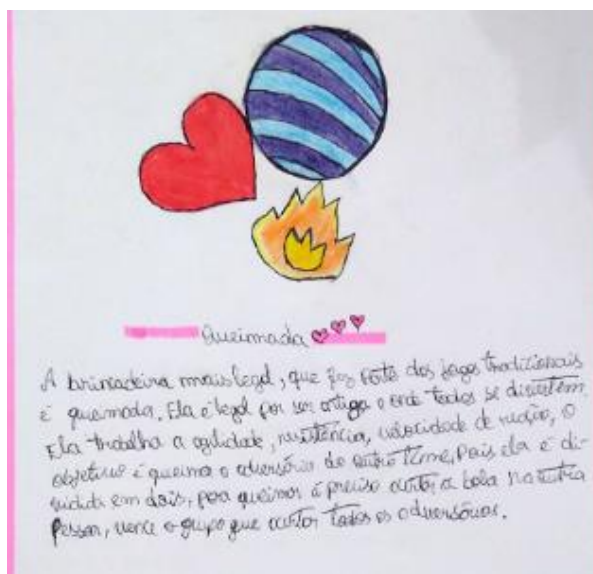 Queimada
A brincadeira mais legal, que faz parte dos jogos tradicionais
é queimada. Ela é legal por ser antiga e onde todos se divertem.
Ela trabalha a agilidade, resistência, velocidade de reação, o
objetivo é queima o adversário do outro time, Pois ela é di-
vidida em dois, para queimar é preciso acertar a bola na outra
pessoa, vence o grupo que acertar todos os adversários.